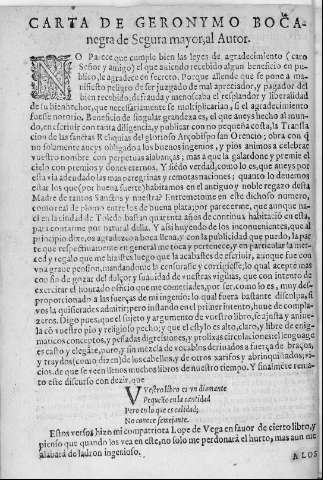 CARTA DE GERONYMO BOCA
negra de Segura mayor, al Autor.
NO Parece que cumple bien las leyes de agradecimiento (caro
Señor y amigo) el que auiendo recebido algun beneficio en pu-
blico, le agradece en secreto. Porque allende que se pone a ma-
nifiesto peligro de ser juzgado de mal apreciador, y pagador del
bien recebido, defrauda y menoscaba el resplandor y liberalidad
de su bienhechor, que necessariamente se multiplicarian, si el agradecimiento
fuesse notorio. Beneficio de singular grandeza es, el que aueys hecho al mun-
do, en escriuir con tanta diligencia, y publicar con no pequeña costa, la Trans
lacion de las sanctas Reliquias del glorioso Arçobispo san
no solamente aueys obligado a los buenos ingenios, y pios animos a celebrar
vuestro nombre con perpetuas alabanças; mas a que la galardone y premie el
cielo con premios y dones eternos. Y siendo verdad, como lo es, que aueys por
esta via adelantado las mas peregrinas y remotas naciones; quanto lo deuemos
estar los que (por buena suerte) habitamos en el antiguo y noble regazo desta
Madre de tantos Sanctos y nuestra? Entre
como real de plomo entre los de buena plata; por parecerme, que aunque na-
ci en la ciudad de Toledo bastan quarenta años de continua habitacion en esta,
para contarme por natural della. Y assi huyendo de los inconuenientes, que al
principio dixe, os agradezco a boca llena, y con la publicidad que puedo, la par-
te que respectiuamente en general me toca y pertenece, y en particular la mer-
ced y regalo que me hizistes luego que la acabastes de escriuir, aunque fue con
voz graue pension, mandandome la censurasse y corrigiesse; lo qual acepté mas
con fin de gozar del dulçor y suauidad de vuestras vigilias, que con intento de
exercitar el honrado officio que me cometiades, por ser, como lo es, muy des-
proporcionado a las fuerças de mi ingenio: lo qual fuera bastante disculpa, si
vos la quisierades admitir, pero instando en el primer intento, huue de compla-
zeros. Digo pues, que el sujeto y argumento de vuestro libro, se ajusta y anine-
la cō vuestro pio y religioso pecho; y que el estylo es alto, claro, y libre de enig-
maticos conceptos, y pesadas digressiones, y prolixas circulaciones: el lenguage
es casto y elegante, puro, y sin mezcla de vocablos deriuados a fuerça de braços,
y traydos (como dizen) de los cabellos, y de otros xarifos y abrinquiñados; vi-
cios, de que se veen llenos muchos libros de nuestro tiempo. Y finalmente rema-
to este discurso con dezir, que
Vuestro libro es vn diamante
Pequeño en la cantidad
Pero en lo que es calidad,
No conoce semejante.
Estos versos hizo mi compatriota Lope de Vega en fauor de cierto libro, y
pienso que quando los vea en este, no solo me perdonará el hurto, mas aun me
alabará de ladron ingenioso.
A LOS